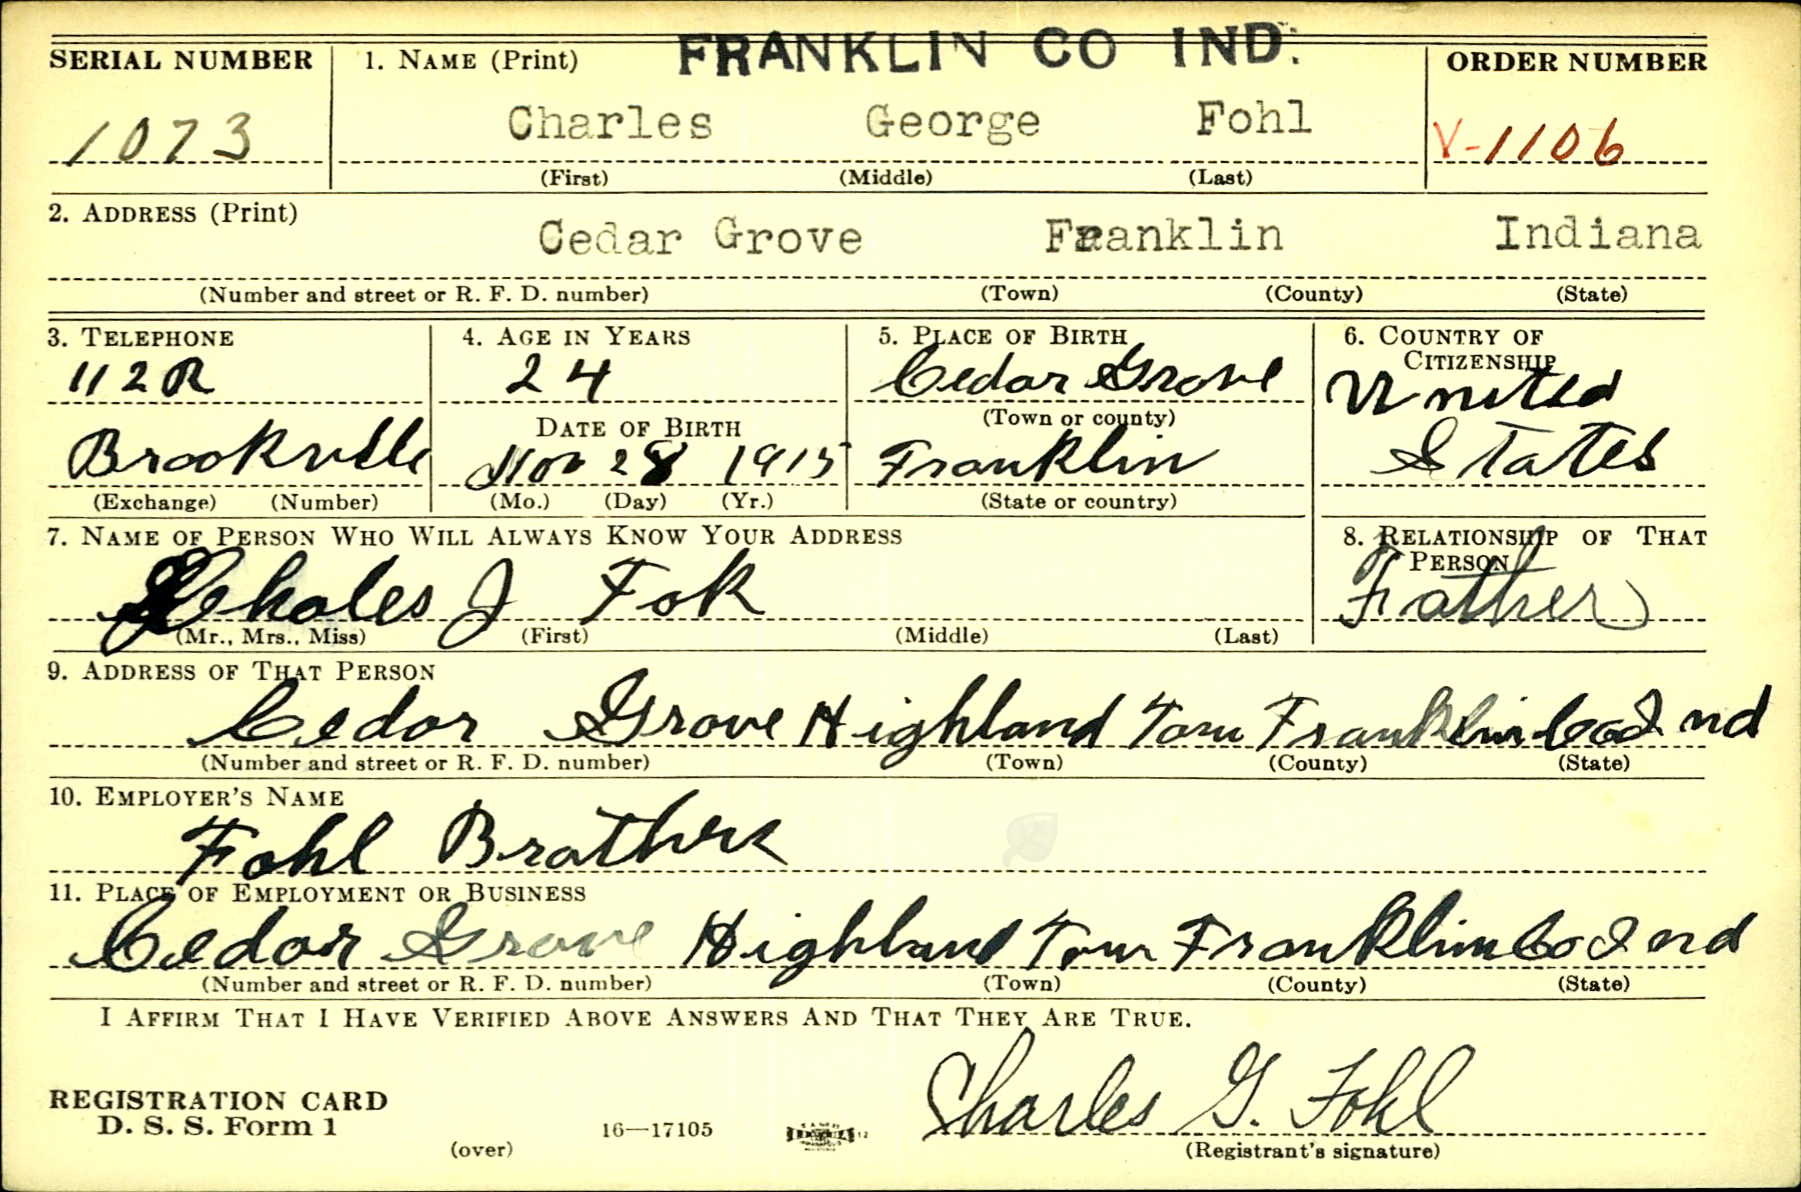 FRANKLIN CO IND.
SERIAL NUMBER 1. NAME (Print) ORDER NUMBER
1073 Charles George Fohl V-1106
(First) (Middle) (Last)
2. ADDRESS (Print)
Cedar Grove Franklin Indiana
(Number and street or R. F. D. number) (Town) (County) (State)
3. TELEPHONE 4. AGE IN YEARS 5. PLACE OF BIRTH 6. COUNTRY OF CITIZENSHIP
112R 24 Cedar Grove United
DATE OF BIRTH (Town or county)
Brookville Nov 28 1915 Franklin States
(Exchange) (Number) (Mo.) (Day) (Yr.) (State or country)
7. NAME OF PERSON WHO WILL ALWAYS KNOW YOUR ADDRESS 8. RELATIONSHIP OF THAT PERSON
Chales J Fok Father
(Mr., Mrs., Miss) (First) (Middle) (Last)
9. ADDRESS OF THAT PERSON
Cedar Grove Highland Tow Franklin Co Ind
(Number and street or R. F. D. number) (Town) (County) (State)
10. EMPLOYER'S NAME
Fohl Brothers
11. PLACE OF EMPLOYMENT OR BUSINESS
Cedar Grove Highland Tow Franklin Co Ind
(Number and street or R. F. D. number) (Town) (County) (State)
I AFFIRM THAT I HAVE VERIFIED ABOVE ANSWERS AND THAT THEY ARE TRUE.
REGISTRATION CARD
D. S. S. Form 1 Charles G. Fohl
(over) 16—17105 (Registrant's signature)